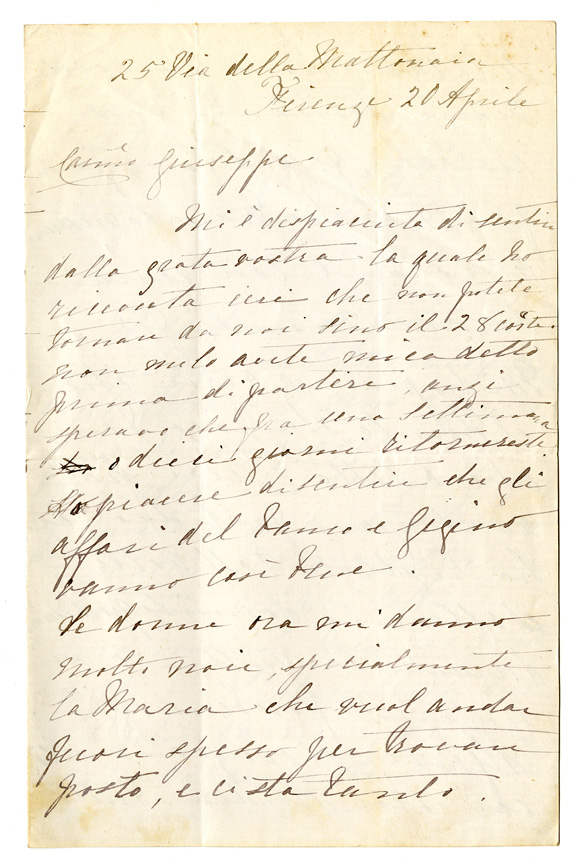 25 Via della Mattonaia
Firenze 20 Aprile
Giuseppe
Mi è dispiaciuto di sentire
dalla grata vostra la quale ho
ricevuta ieri che non potete
tornare da noi sino il 28 corte.
non me lo avete mica detto
prima di partire, anzi
speravo che fra una settimana
o dieci giorni ritornereste.
Ho piacere di sentire che gli
affari del e Gigino
vanno così bene.
Le donne ora mi danno
molto noie, specialmente
la Maria che vuol andar
fuori spesso per trovare
posto, e ci sta tanto.